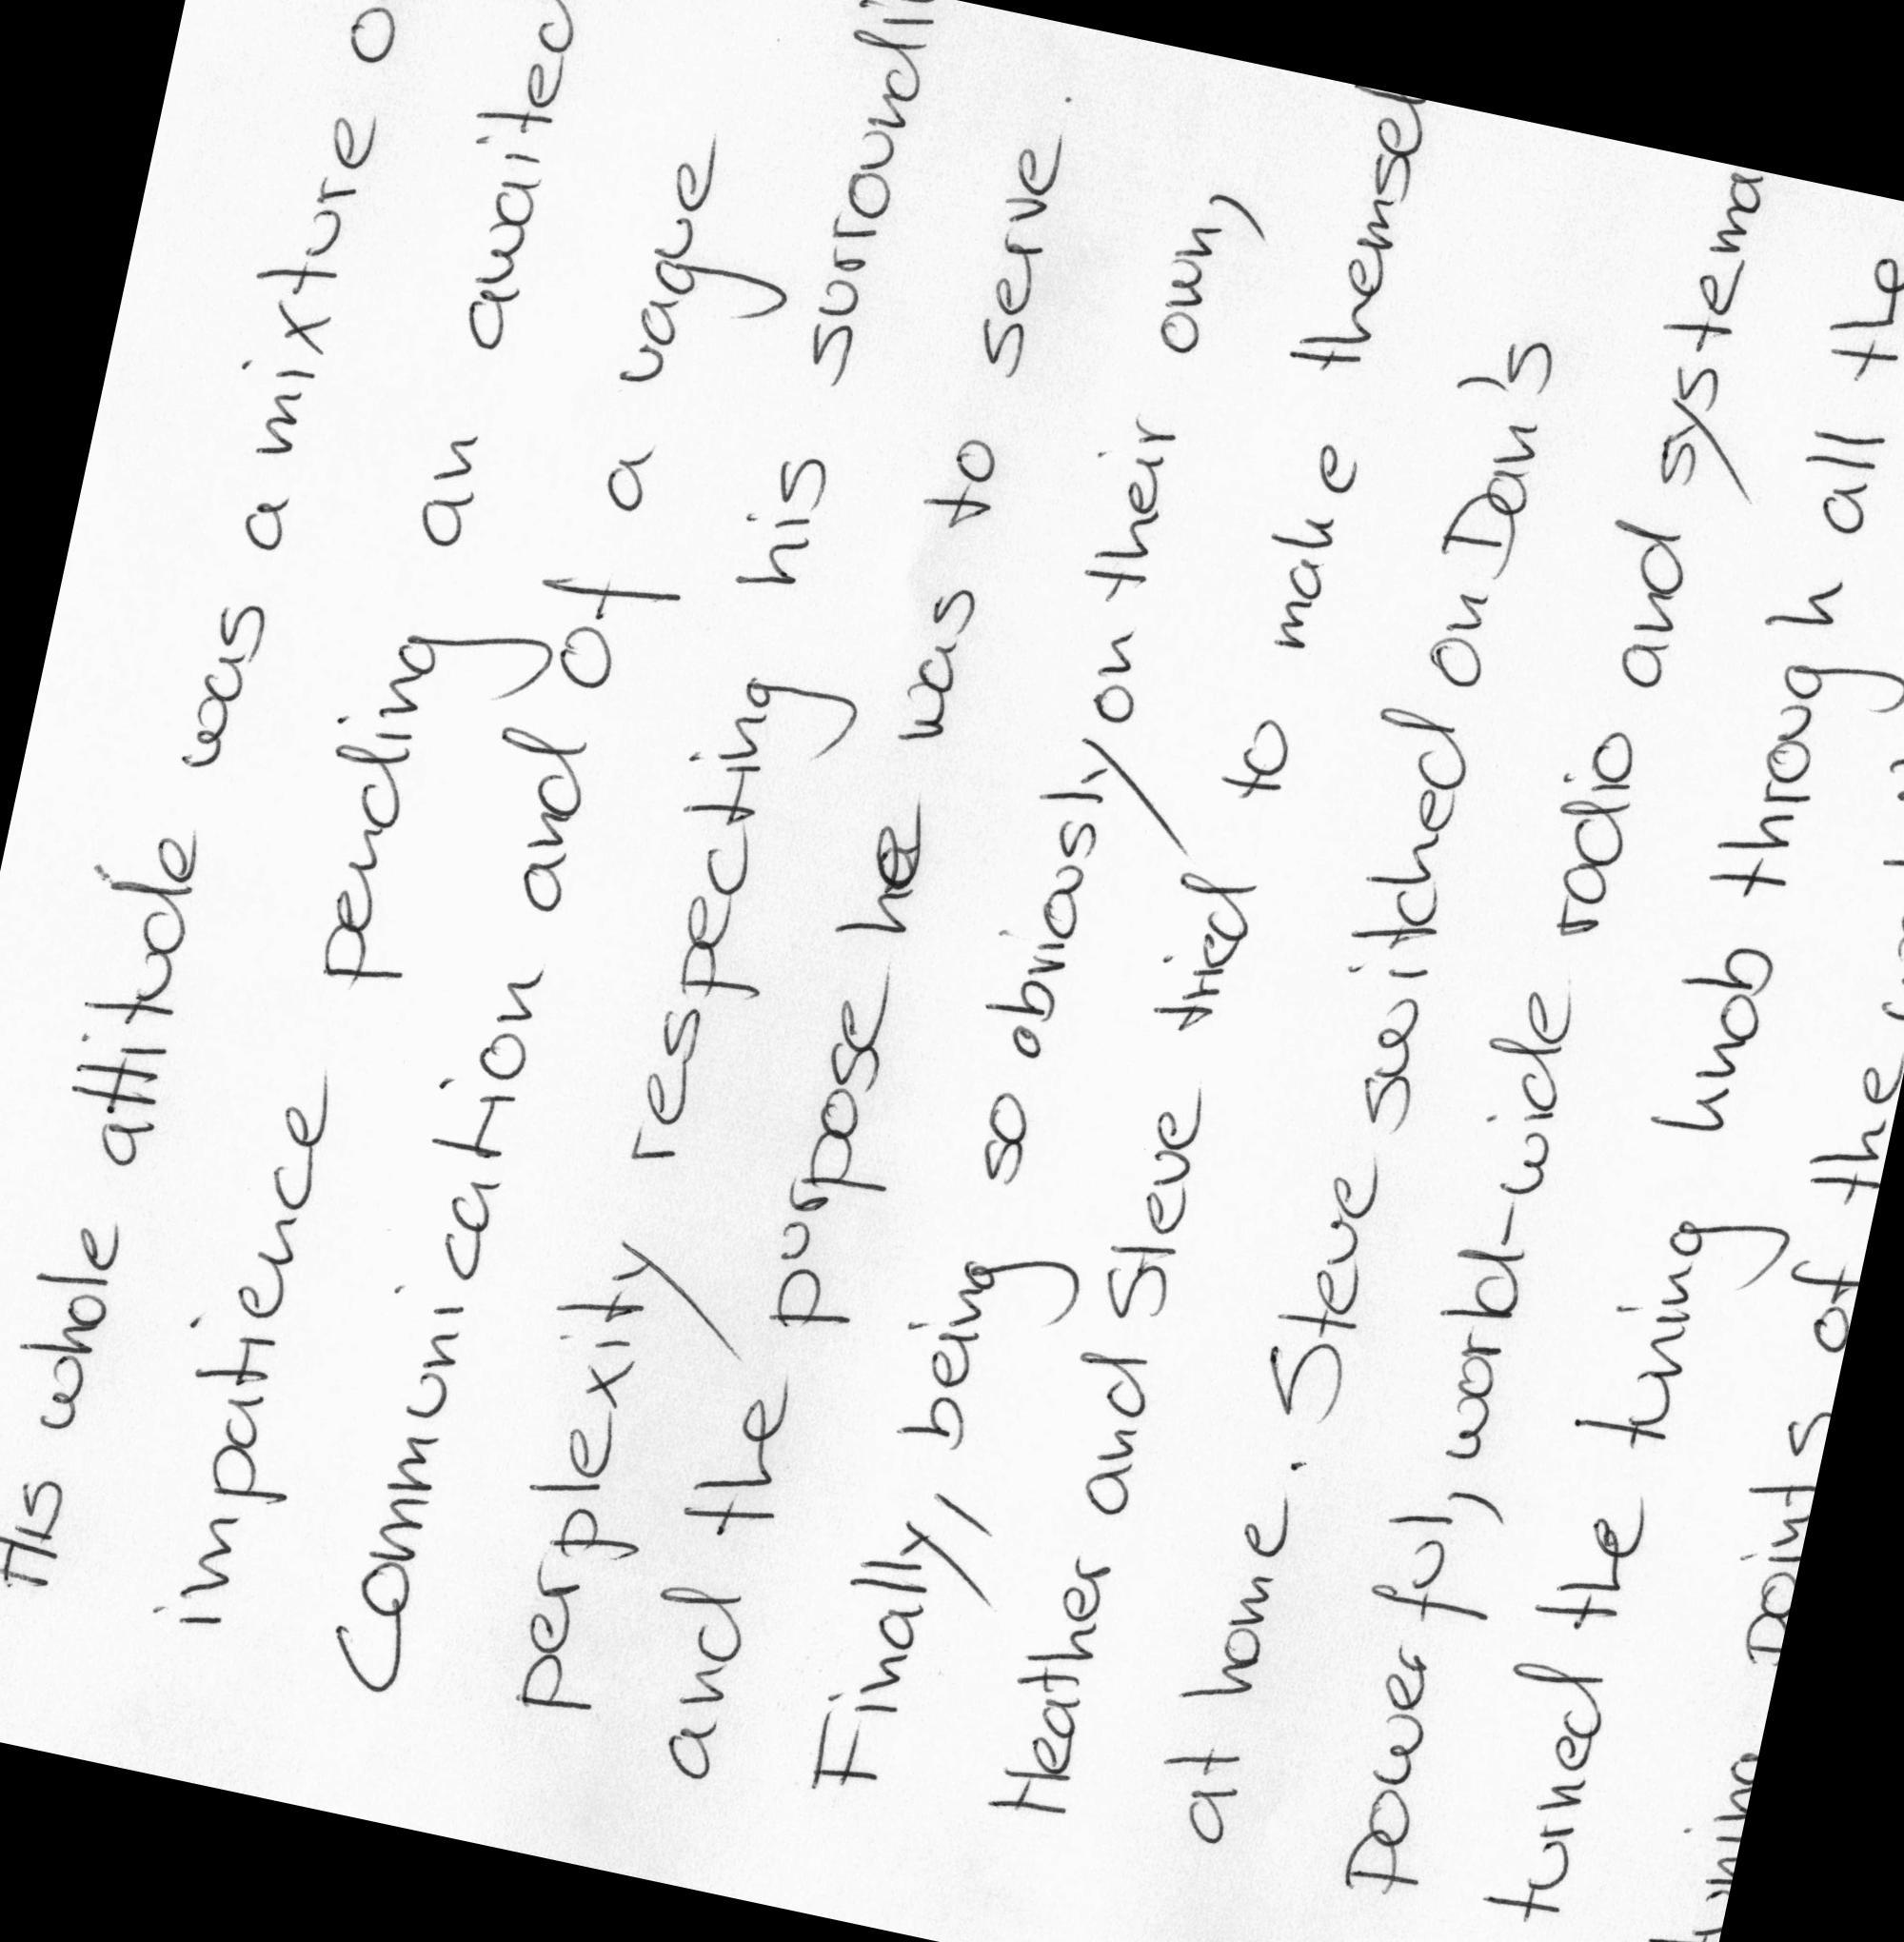 His whole attitude was a mixture o
impatience pending an awaited
Communication and of a vague
perplexity respecting his surroundi
and the purpose he was to serve.
Finally, being so obviously on their own,
Heather and Steve tried to make themsel
at home. Steve switched on Dan's
Powerful, world-wide radio and systema
turned the tuning knob through all the
tuning points of the